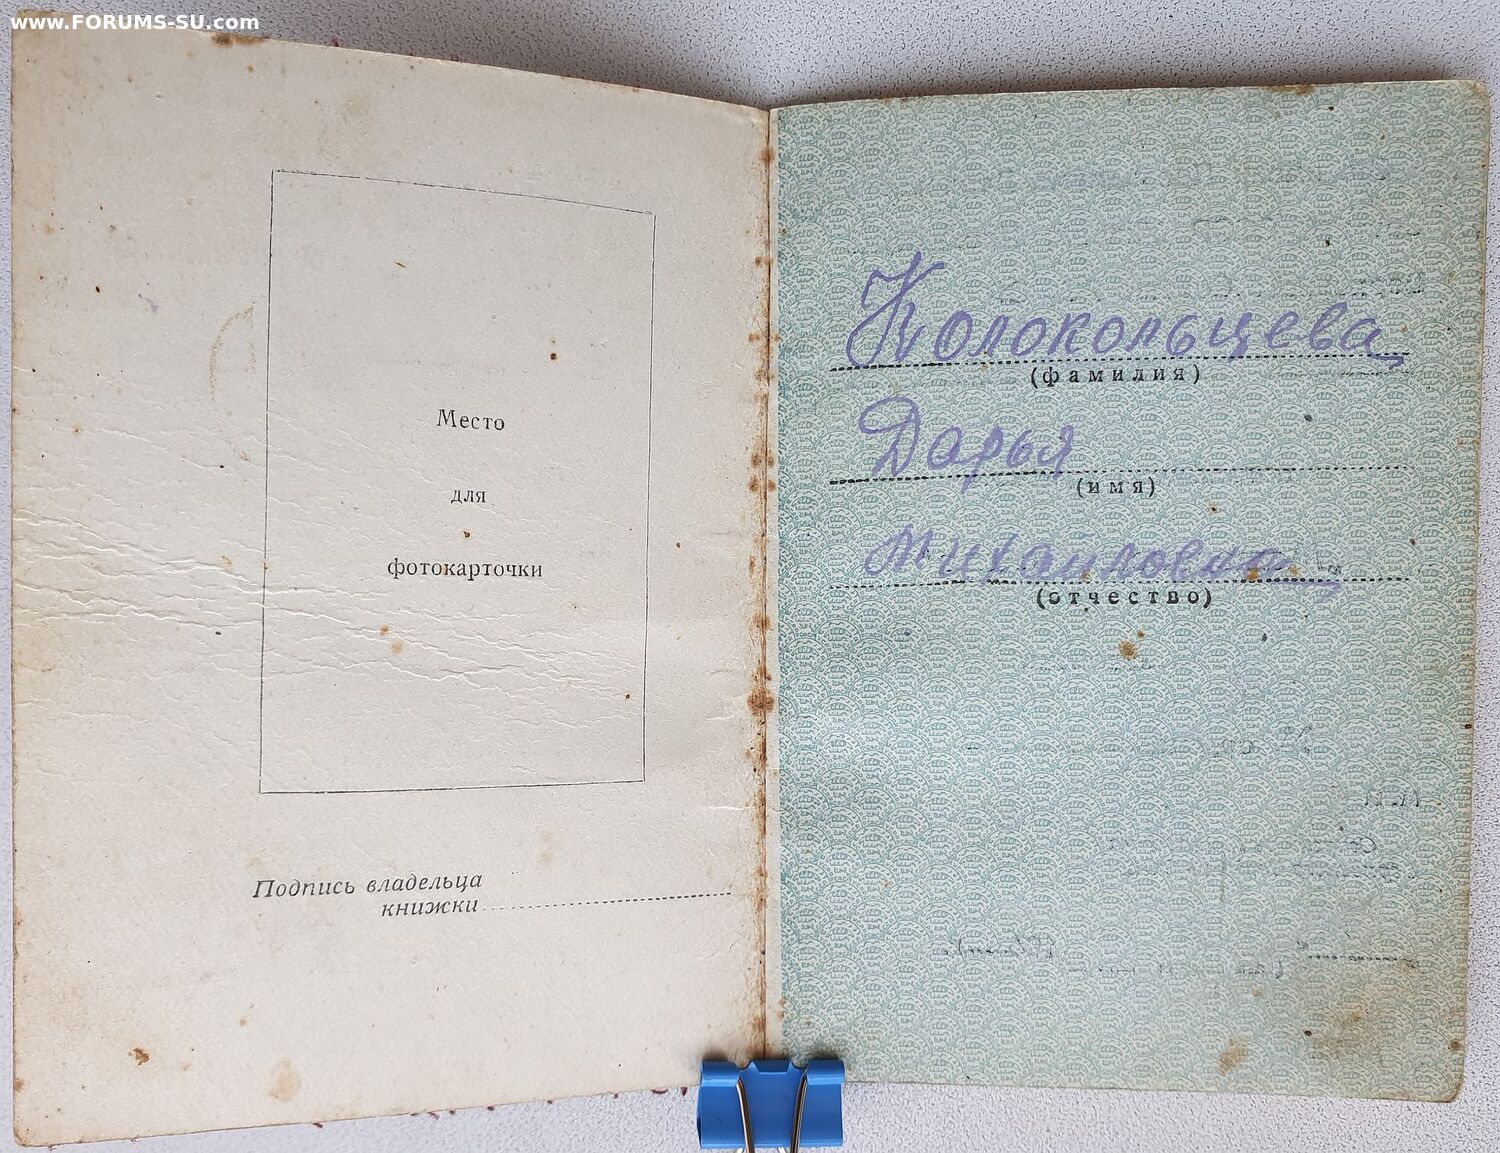 www.FORUMS-SU.com
Место
для
фотокарточки
Подпись владельца
книжки
Колокольцева
(фамилия)
Дарья
(имя)
Михайловна
(отчество)